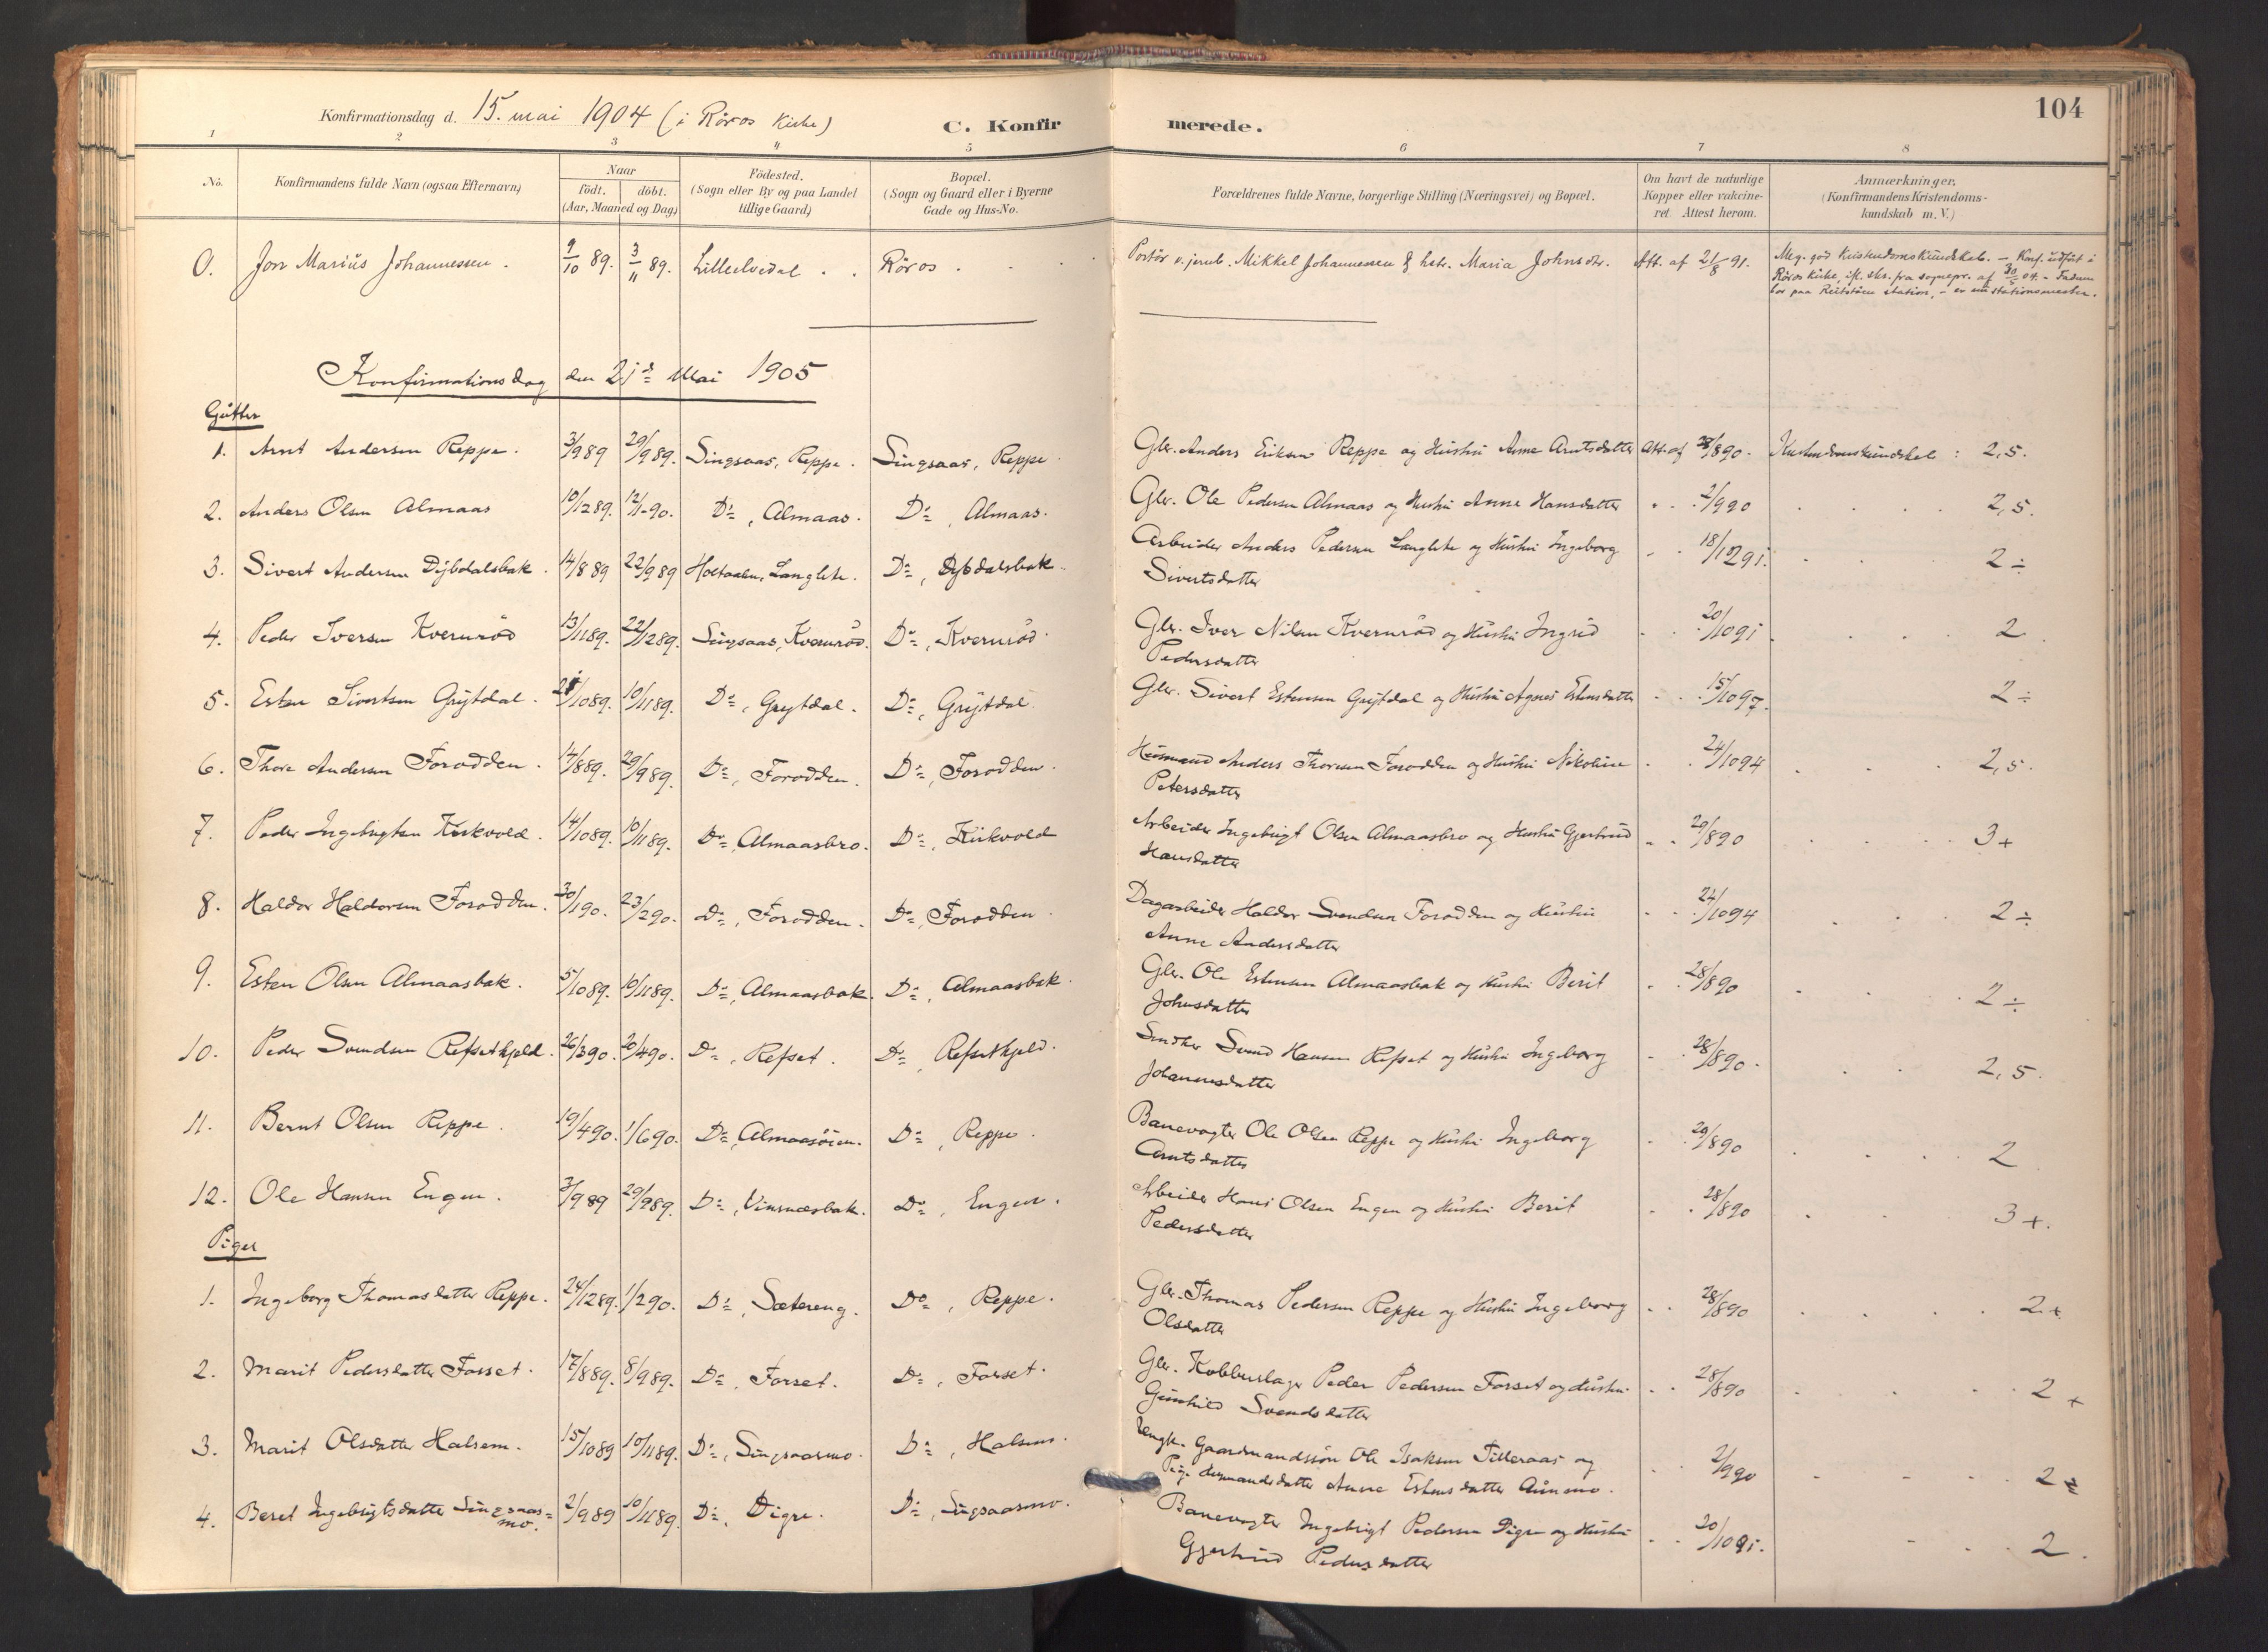 104
Konfirmationsdag d. 15. mai 1904 (i Röros Kirke) C. Konfirmerede.
1 2 3 4 5 6 7 8
No. Konfirmandens fulde Navn (ogsaa Efternavn) Naar födt. döbt. (Aar, Maaned og Dag.) Födested. (Sogn eller By og paa Landet tillige Gaard) Bopæl. (Sogn og Gaard eller i Byerne Gade og Hus-No. Forældrenes fulde Navne, borgerlige Stilling (Næringsvei) og Bopæl. Om havt de naturlige Kopper eller vakcineret Attest herom. Anmærkninger, (Konfirmandens Kristendomskundskab m. V.)
0. Jon Marius Johannessen. 9/10 89. 3/11 89. Lilleelvedal . . Röros . Portör v. jernb. Mikkel Johannessen & hstr. Maria Johnsdtr. Att. af 21/8 91. Meg. god Kristendomskundskab. - Konf. udfört i
Röros kirke, ifl. skr. fra sognepr. af 30/5 04. - Faderen
bor paa Reitstöen station, - er nu stationsmester.
Konfirmationsdag den 21de Mai 1905
Gutter
1. Arnt Andersen Reppe. 3/9 89 29/9 89. Singsaas, Reppe. Singsaas, Reppe Gbr. Anders Eriksen Reppe og Hustru Anne Arntsdatter Att. af 28/8 90. Kristendomskundskab : 2,5.
2. Anders Olsen Almaas 10/12 89. 12/1 90. Do, Almaas. Do, Almaas. Gbr. Ole Pedersen Almaas og Hustru Anne Hansdatter . . 2/9 90 2,5.
3. Sivert Andersen Dybdalsbak. 14/8 89 22/9 89 Holtaalen, Langlete. Do, Dybdalsbak. Arbeider Anders Pedersen Langlete og Hustru Ingeborg
Sivertsdatter . . 18/12 91. 2 ÷
4. Peder Iversen Kvernröd 13/11 89. 22/12 89. Singsaas, Kvernröd. Do, Kvernröd. Gbr. Iver Nilsen Kvernröd og Hustru Ingrid
Pedersdatter . . 20/10 91 2
5. Esten Sivertsen Grytdal. 21/10 89. 10/11 89. Do, Grytdal. Do, Grytdal. Gbr. Sivert Estensen Grytdal og Hustru Agnes Estensdatter . . 15/10 97. 2 ÷
6. Thore Andersen Forodden. 14/8 89. 29/9 89. Do, Forodden. Do, Forodden. Husmand Anders Thoresen Forodden og Hustru Nikoline
Petersdatter . . 24/10 94 2,5.
7. Peder Ingebrigtsen Kirkvold. 14/10 89. 10/11 89. Do, Almaasbro. Do, Kirkvold Arbeider Ingebrigt Olsen Almaasbro og Hustru Gjertrud
Hansdatter . . 29/8 90 3 +
8. Haldor Haldorsen Forodden. 30/1 90. 23/2 90. Do, Forodden. Do, Forodden. Dagarbeider Haldor Svendsen Forodden og Hustru
Anne Andersdatter . . 24/10 94 2 ÷
9. Esten Olsen Almaasbak. 5/10 89. 10/11 89. Do, Almaasbak. Do, Almaasbak. Gbr. Ole Estensen Almaasbak og Hustru Berit
Johnsdatter . . 28/8 90 2 ÷
10. Peder Svendsen Refsetkjeld. 26/3 90. 20/4 90. Do, Refset. Do, Refsetkjeld. Snedker Svend Hansen Refset og Hustru Ingeborg
Johannesdatter . . 28/8 90. 2,5.
11. Bernt Olsen Reppe. 19/4 90. 1/6 90. Do, Almaasöien. Do, Reppe. Banevogter Ole Olsen Reppe og Hustru Ingeborg
Arntsdatter . . 29/8 90 2
12. Ole Hansen Engen. 3/9 89 29/9 89. Do, Vinsnæsbak. Do, Engen. Arbeider Hans Olsen Engen og Hustru Berit
Pedersdatter . . 28/8 90 3 +.
Piger
1. Ingeborg Thomasdatter Reppe. 24/12 89. 1/2 90. Do, Sætereng. Do, Reppe. Gbr. Thomas Pedersen Reppe og Hustru Ingeborg
Olsdatter . . 28/8 90 2 +
2. Marit Pedersdatter Forset. 17/8 89. 8/9 89. Do, Forset. Do, Forset. Gbr. Kobberslager Peder Pedersen Forset og Hustru
Gunhild Svendsdatter . . 28/8 90 2 +
3. Marit Olsdatter Halsem. 15/10 89 10/11 89. Do, Singsaasmo. Do, Halsem. Ungk. Gaardmandssön Ole Isaksen Tilleraas og
Pige Husmandsdatter Anne Estensdatter Aunemo. . . 2/9 90 2 ÷
4. Beret Ingebrigtsdatter Singsaas=
mo. 2/9 89 10/11 89. Do, Digre. Do, Singsaasmo. Banevogter Ingebrigt Pedersen Digre og Hustru
Gjertrud Pedersdatter . . 20/10 91. 2.